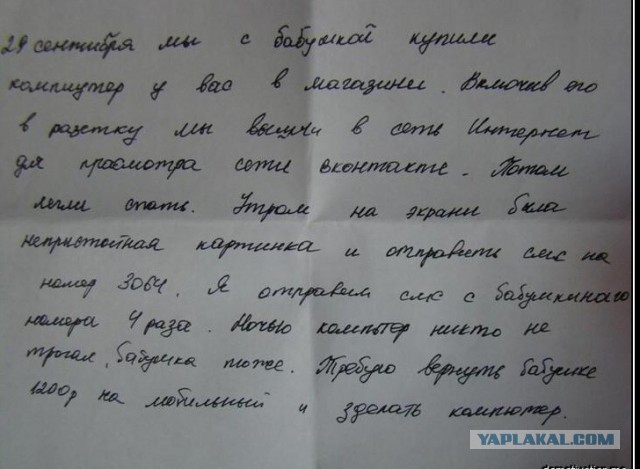 29 сентября мы с бабушкой купили
компиутер у вас в магазини. Включив его
в разетку мы вышли в сеть Интернет
для прасмотра сети вконтакте. Потом
легли спать. Утром на экрани была
непристойная картинка и отправить смс на
номер 3064. Я отправил смс с бабушкиного
номера 4 раза. Ночью компьтер никто не
трогал, бабушка тоже. Требую вернуть бабушке
1200р на мобильный и зделать компютер.
YAPLAKAL.COM